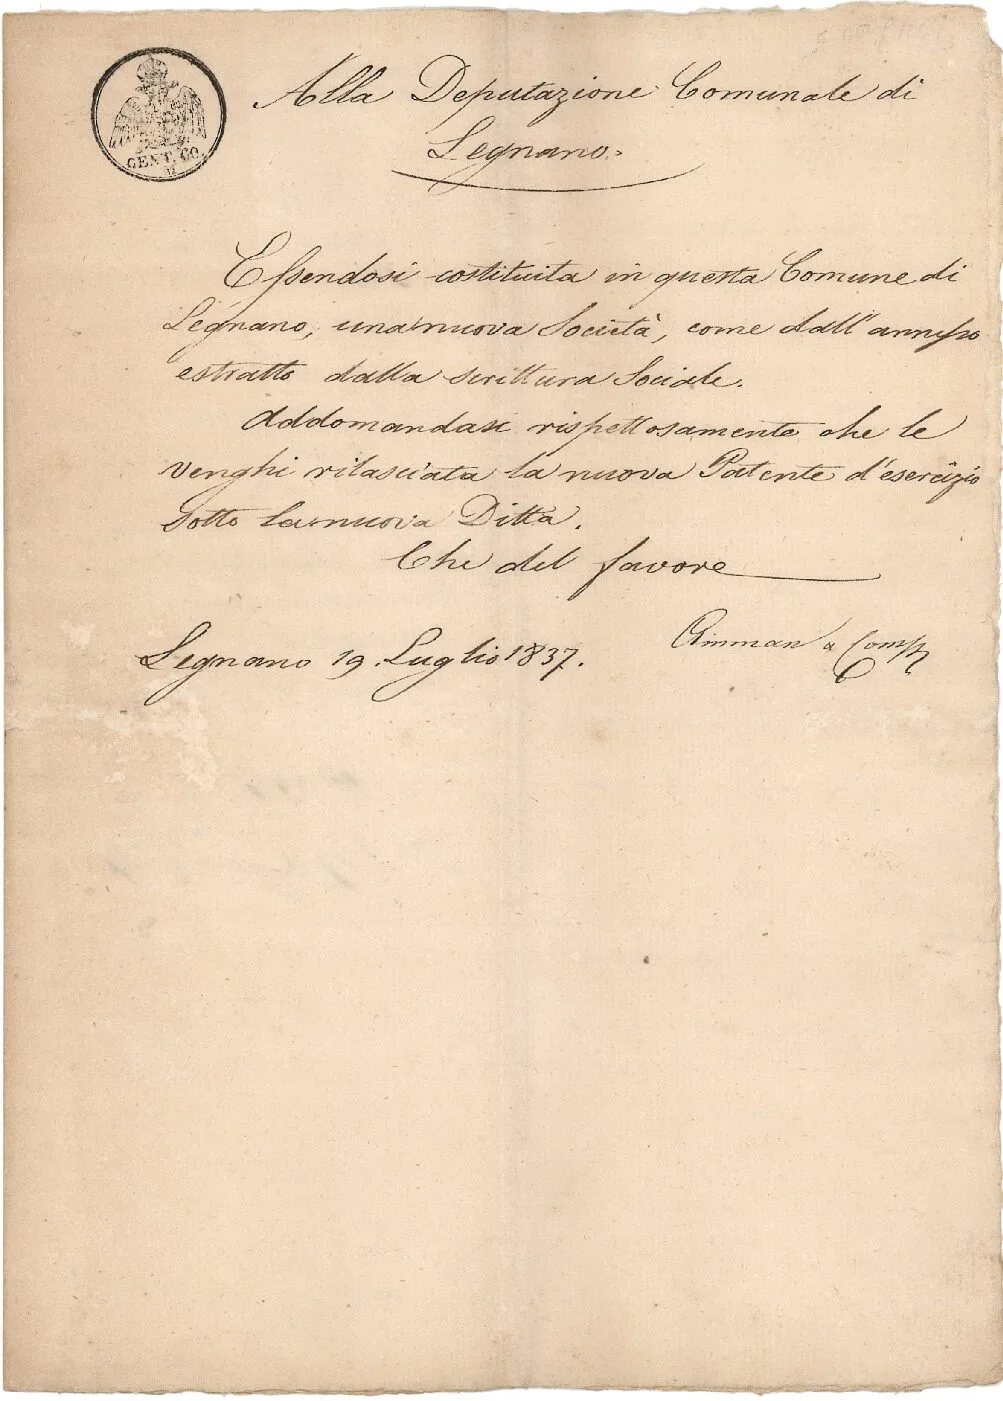 CENT. 60.
Alla Deputazione Comunale di
Legnano.
Essendosi costituita in questa Comune di
Legnano, una nuova Società, come dall'annesso
estratto dalla scrittura Sociale.
Addomandasi rispettosamente che le
venghi rilasciata la nuova Patente d'esercizio
sotto la nuova Ditta.
Che del favore
Amman & Comp
Legnano 19. Luglio 1837.